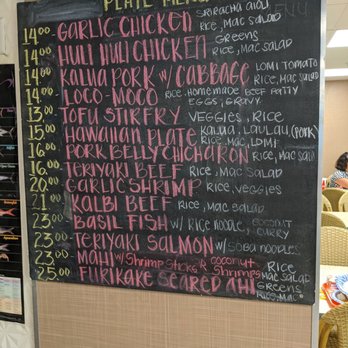 PLATE MENU
14.00 GARLIC CHICKEN SRIRACHA AIOLI Rice, Mac Salad
14.00 HULI HULI CHICKEN Greens Rice, Mac Salad
14.00 KALUA PORK W/ CABBAGE LOMI TOMATO Rice, Mac Salad
14.00 LOCO-MOCO Rice Homemade Beef Patty EGGS, GRAVY
13.00 TOFU STIR FRY VEGGIES, RICE
15.00 HAWAIIAN PLATE KALUA, LAULAU (PORK) Rice, Mac, LOMI
16.00 PORK BELLY CHICHARON Rice, Mac Salad
16.00 TERIYAKI BEEF Rice, Mac Salad
20.00 GARLIC SHRIMP Rice, Veggies
21.00 KALBI BEEF Rice, Mac Salad
23.00 BASIL FISH W/ RICE NOODLES COCONUT CURRY
23.00 TERIYAKI SALMON W/ SOBA NOODLES
23.00 MAHI W/ Shrimp Sticks & Coconut Shrimps Rice Mac Salad
25.00 FURIKAKE SEARED AHI Greens Rice, Mac